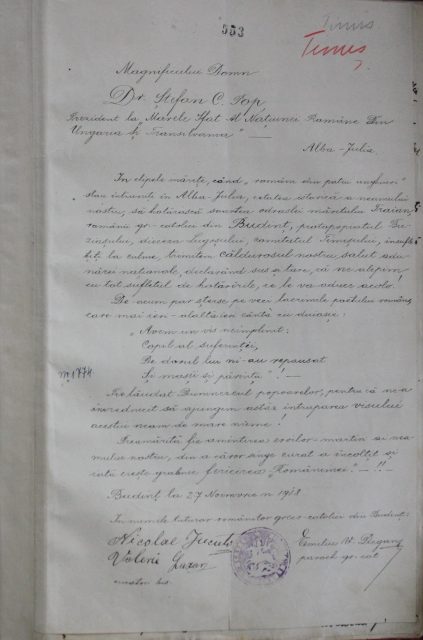 553
Timis
Timis
Magnificului Domn
Dr. Ștefan C. Pop,
Prezident la Marele Sfat al Națiunei Române din
Ungaria și Transilvania"
Alba-Julia.
În clipele mărețe, când „românii din patru unghiuri"
stau întruniți în Alba-Julia, cetatea istorică a neamului
nostru, să hotărască soartea odraslei măritului Traian,
românii gr.-catolici din Budinț, protopopiatul
dieceza Lugojului, comitatul Timișului, însufle-
țiți la culme, trimitem călduroșul nostru salut adu-
nărei naționale, declarând sus și tare, că ne alipim
cu tot sufletul de hotărîrile, ce le va aduce acolo.
De acum păr șterse pe veci lacrimile poetului român,
care mai ieri-alaltăieri cânta cu duioșie:
„Avem un vis neîmplinit,
Copil al suferinței,
De dorul lui ni-au repausat
Și moșii și părinții"! —
Prelăudat Dumnezeul popoarelor, pentru că ne-a
învrednicit să ajungem astăzi întruparea visului
acestui neam de mare nime!
Preamărită fie amintirea eroilor-martiri ai nea-
mului nostru, din a căror sânge curat a încolțit și
iată crește grabnic fericirea „Românimei" — !! —
Budinț la 27 Noemvre n. 1918
În numele tuturor românilor greco-catolici din Budinț:
Nicolae
Valeriu
Emiliu
paroch gr. cat.
№ 1774